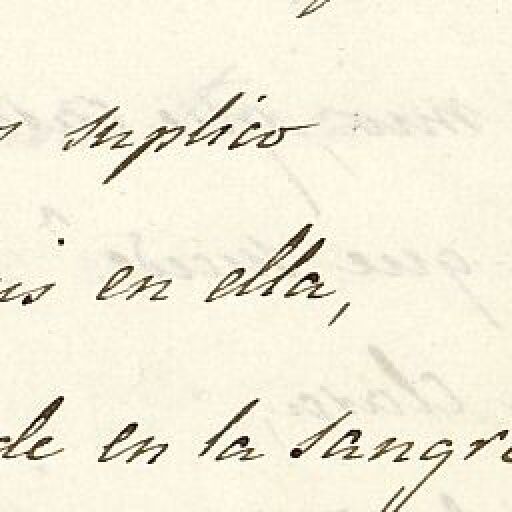 s suplico
is en ella,
de en la sangre